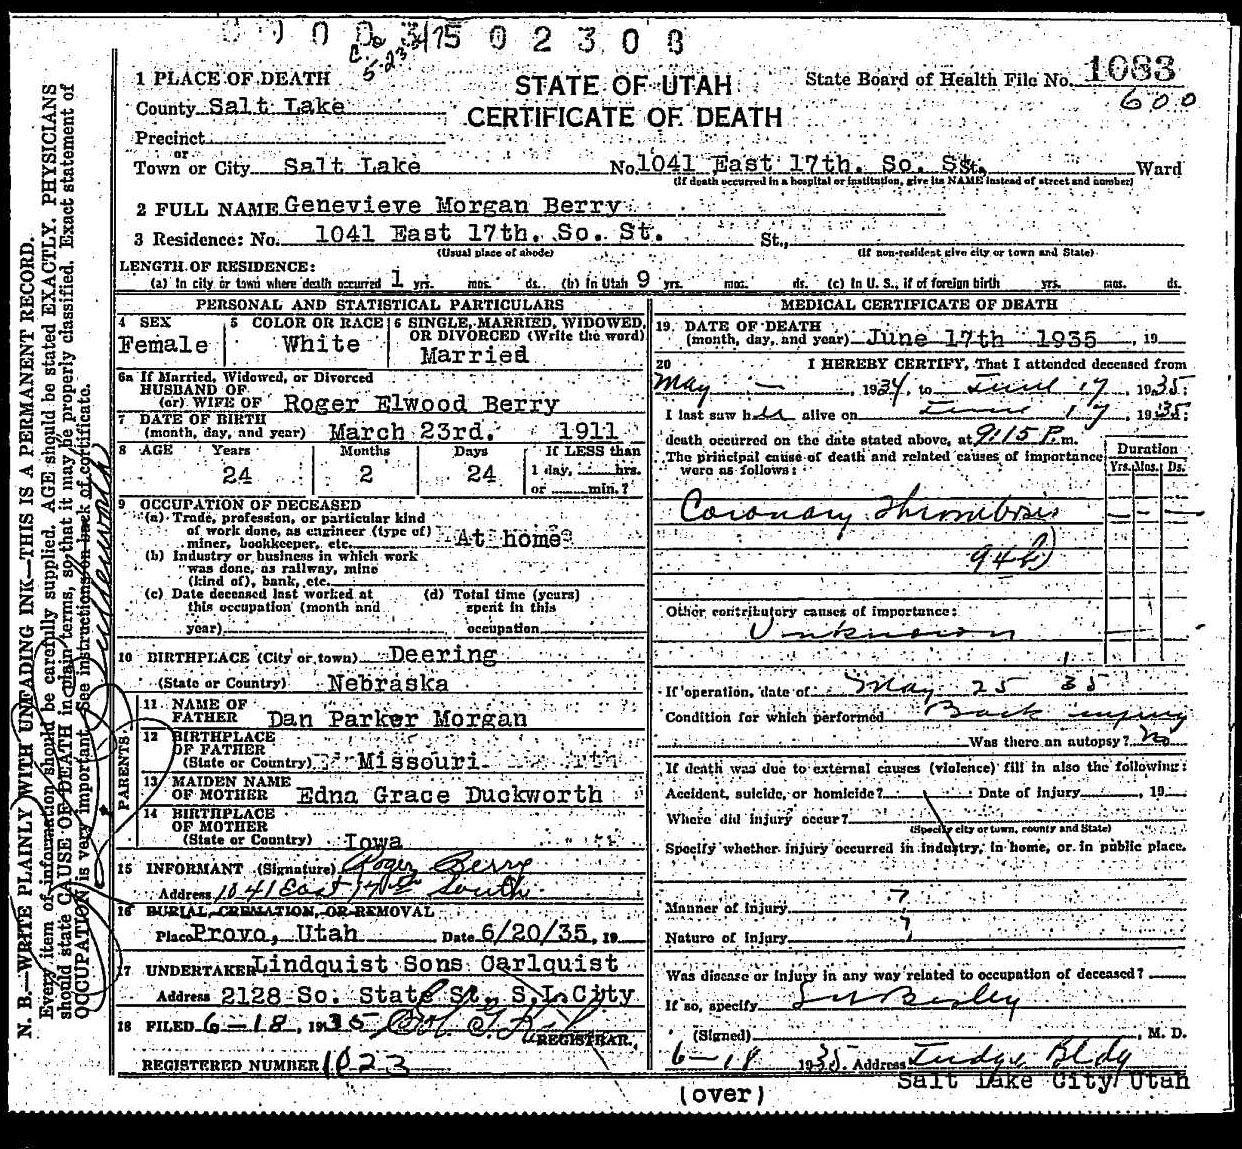 0 0 0 3/15 0 2 3 0 8
5-23
1 PLACE OF DEATH
STATE OF UTAH
CERTIFICATE OF DEATH
State Board of Health File No. 1083
600
County Salt Lake
Precinct
or
Town or City Salt Lake No. 1041 East 17th. So. St. Ward
(If death occurred in a hospital or institution, give its NAME instead of street and number)
2 FULL NAME Genevieve Morgan Berry
3 Residence: No. 1041 East 17th. So. St. St.,
(Usual place of abode) (If non-resident give city or town and State)
LENGTH OF RESIDENCE:
(a) In city or town where death occurred 1 yrs. mos. ds. (b) In Utah 9 yrs. mos. ds. (c) In U. S., if of foreign birth yrs. mos. ds.
PERSONAL AND STATISTICAL PARTICULARS
4 SEX
Female
5 COLOR OR RACE
White
6 SINGLE, MARRIED, WIDOWED,
OR DIVORCED (Write the word)
Married
6a If Married, Widowed, or Divorced
HUSBAND OF
(or) WIFE OF Roger Elwood Berry
7 DATE OF BIRTH
(month, day, and year) March 23rd. 1911
8 AGE Years Months Days If LESS than
24 2 24 1 day, hrs.
or min.?
9 OCCUPATION OF DECEASED
(a) Trade, profession, or particular kind
of work done, as engineer (type of)
miner, bookkeeper, etc. At home
(b) Industry or business in which work
was done, as railway, mine
(kind of), bank, etc.
(c) Date deceased last worked at
this occupation (month and
year)
(d) Total time (years)
spent in this
occupation
10 BIRTHPLACE (City or town) Deering
(State or Country) Nebraska
PARENTS
11 NAME OF
FATHER Dan Parker Morgan
12 BIRTHPLACE
OF FATHER
(State or Country) Missouri
13 MAIDEN NAME
OF MOTHER Edna Grace Duckworth
14 BIRTHPLACE
OF MOTHER
(State or Country) Iowa
15 INFORMANT (Signature) Roger Berry
Address 1041 East 17th South
16 BURIAL, CREMATION, OR REMOVAL
Place Provo, Utah Date 6/20/35, 19
17 UNDERTAKER Lindquist Sons Carlquist
Address 2128 So. State St. S.L.City
18 FILED 6-18, 1935
REGISTRAR.
REGISTERED NUMBER 1023
MEDICAL CERTIFICATE OF DEATH
19. DATE OF DEATH
(month, day, and year) June 17th 1935, 19
20 I HEREBY CERTIFY, That I attended deceased from
May -, 1934, to June 17, 1935:
I last saw her alive on June 17 1935:
death occurred on the date stated above, at 9:15 P.m.
The principal cause of death and related causes of importance
were as follows:
Duration
Yrs. Mos. Ds.
Coronary Thrombosis
94b)
Other contributory causes of importance:
Unknown
If operation, date of May 25 35
Condition for which performed Back injury
Was there an autopsy? No
If death was due to external causes (violence) fill in also the following:
Accident, suicide, or homicide? Date of injury, 19
Where did injury occur?
(Specify city or town, county and State)
Specify whether injury occurred in industry, in home, or in public place.
Manner of injury ?
Nature of injury ?
Was disease or injury in any way related to occupation of deceased?
If so, specify
(Signed), M. D.
6-18 1935. Address Judge Bldg
Salt Lake City Utah
(over)
N. B.—WRITE PLAINLY WITH UNFADING INK—THIS IS A PERMANENT RECORD.
Every item of information should be carefully supplied. AGE should be stated EXACTLY. PHYSICIANS
should state CAUSE OF DEATH in plain terms, so that it may be properly classified. Exact statement of
OCCUPATION is very important. See instructions on back of certificate.